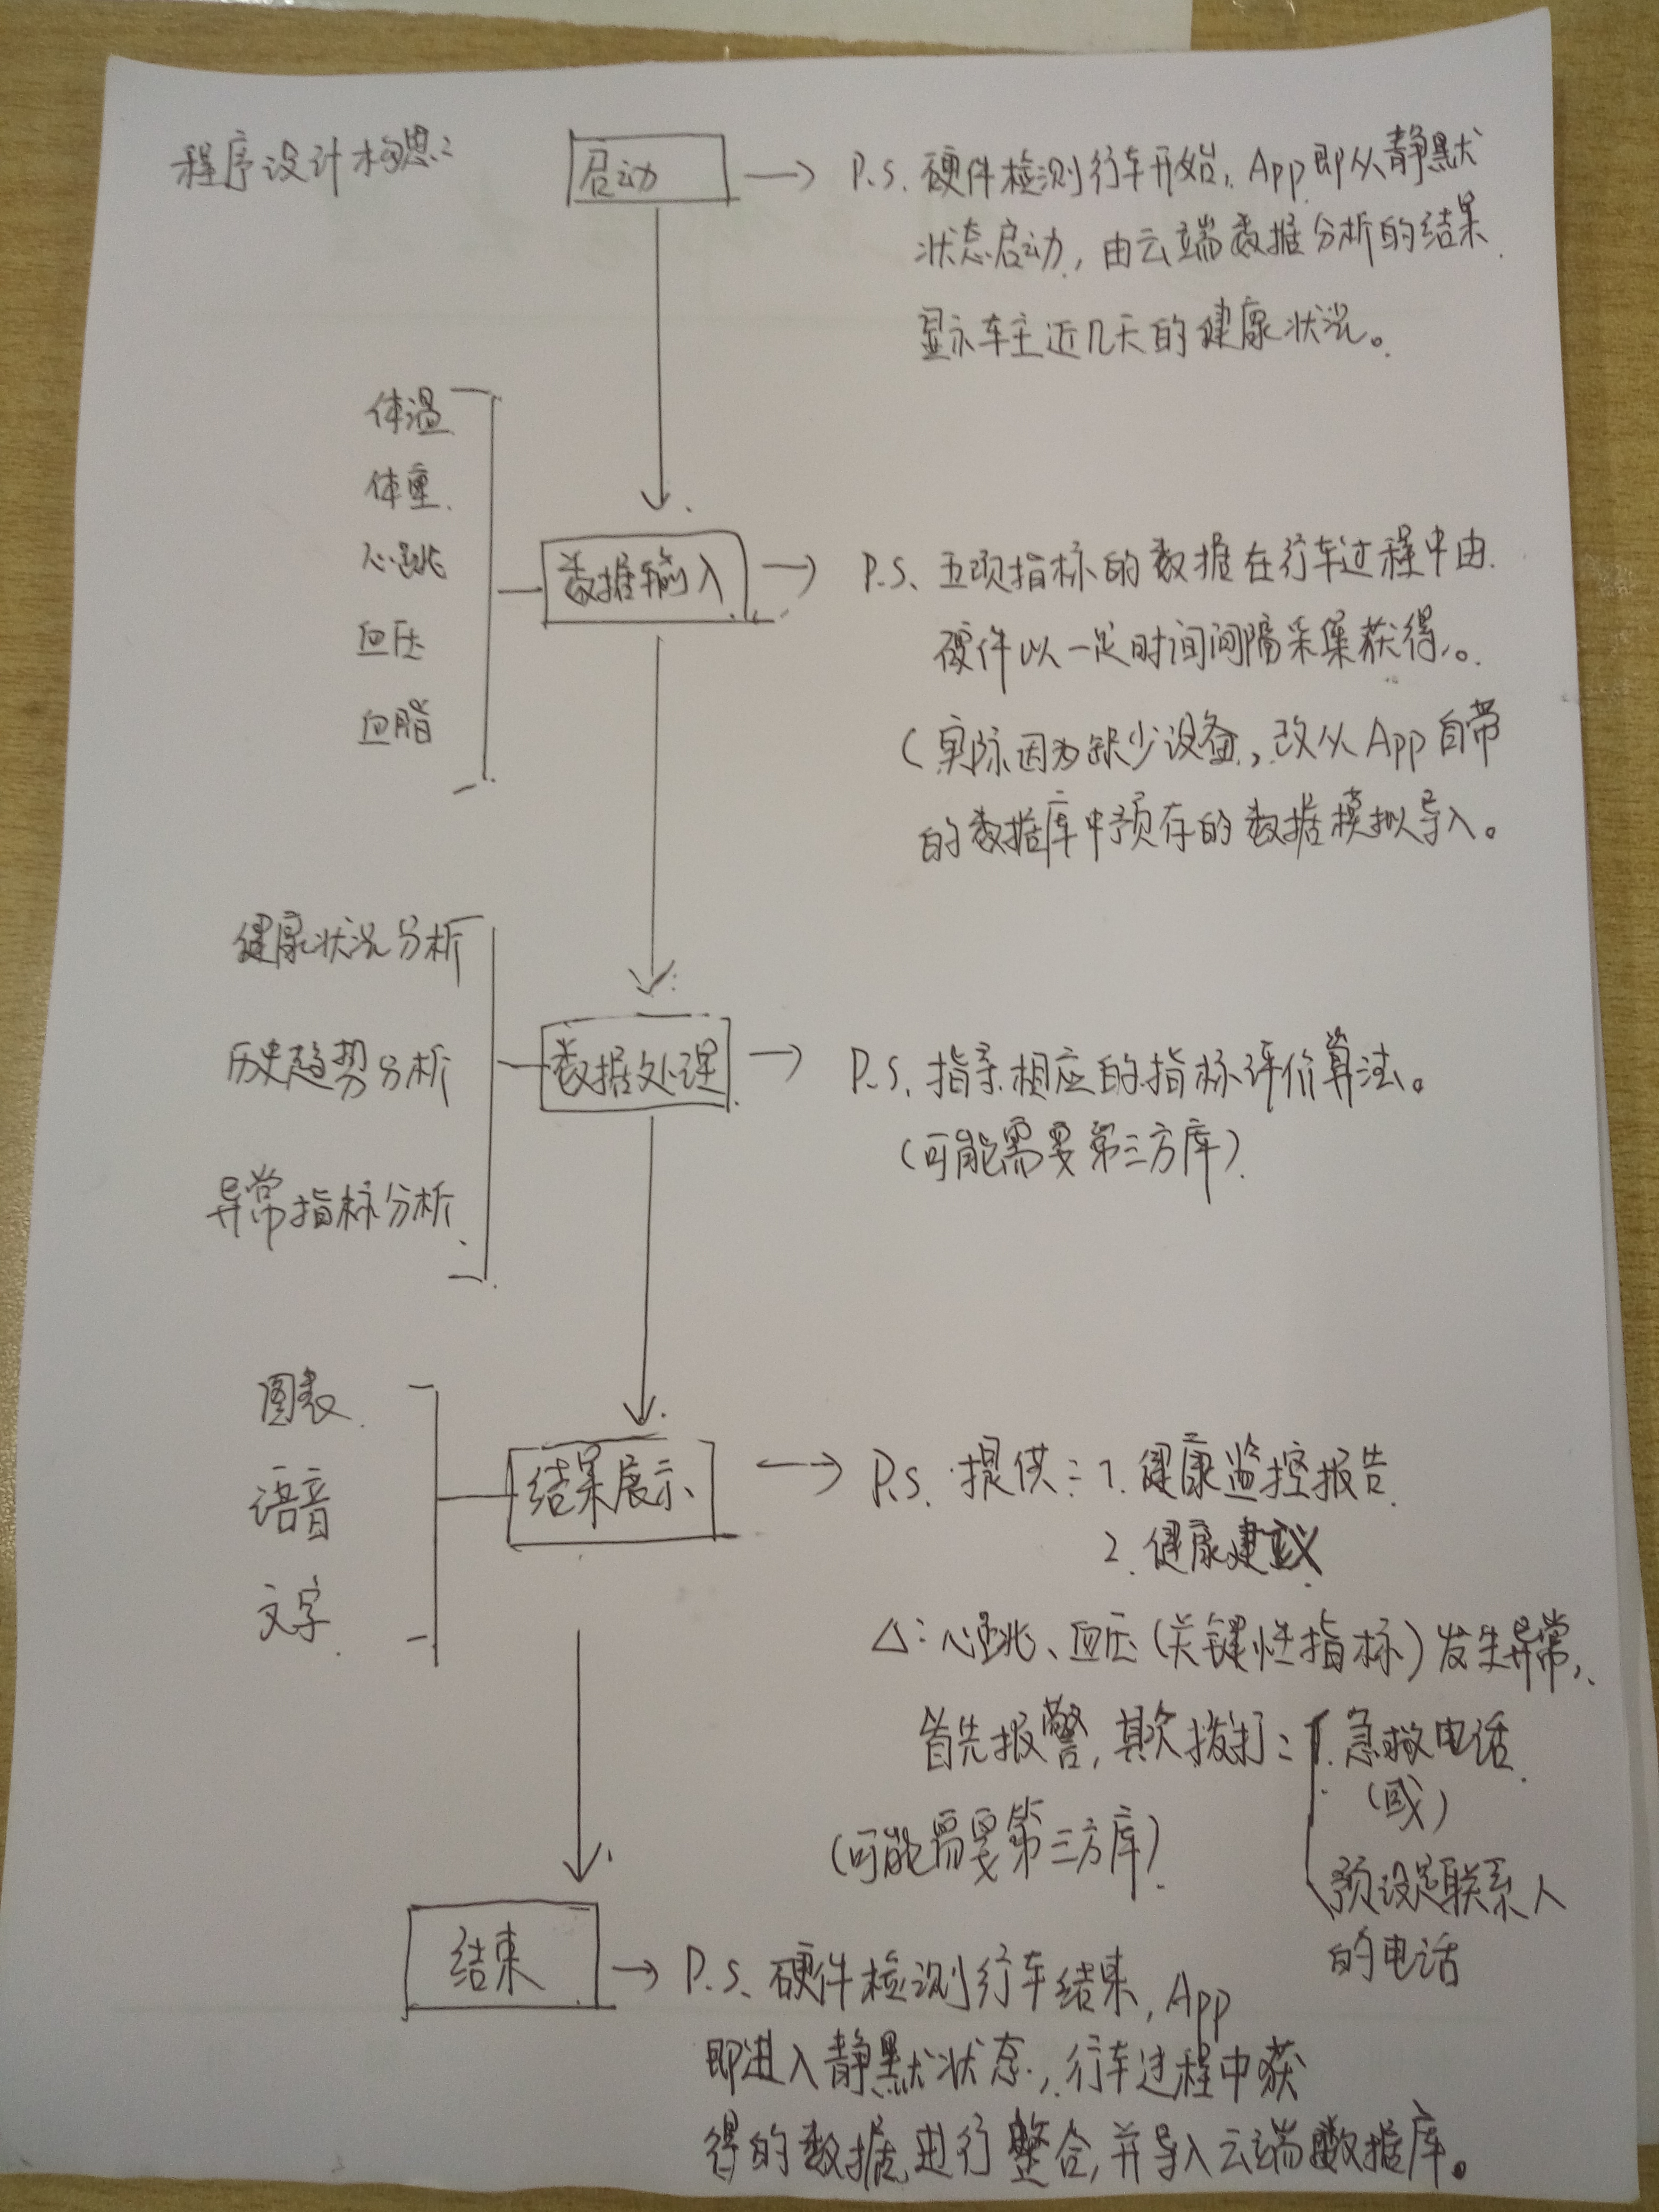 程序设计构思:
启动
P.S. 硬件检测行车开始, App即从静默
状态启动, 由云端数据分析的结果
显示车主近几天的健康状况。
体温
体重
心跳
血压
血脂
数据输入
P.S. 五项指标的数据在行车过程中由
硬件以一定时间间隔采集获得。
(实际因为缺少设备, 改从App自带
的数据库中预存的数据模拟导入。
健康状况分析
历史趋势分析
异常指标分析
数据处理
P.S. 指导相应的指标评价算法。
(可能需要第三方库)
图表
语音
文字
结果展示
P.S. 提供: 1. 健康监控报告
2. 健康建议
△: 心跳、血压(关键性指标)发生异常,
首先报警, 其次拨打: 1. 急救电话
(或)
预设定联系人
的电话
(可能需要第三方库)
结束
P.S. 硬件检测行车结束, App
即进入静默状态, 行车过程中获
得的数据进行整合, 并导入云端数据库。